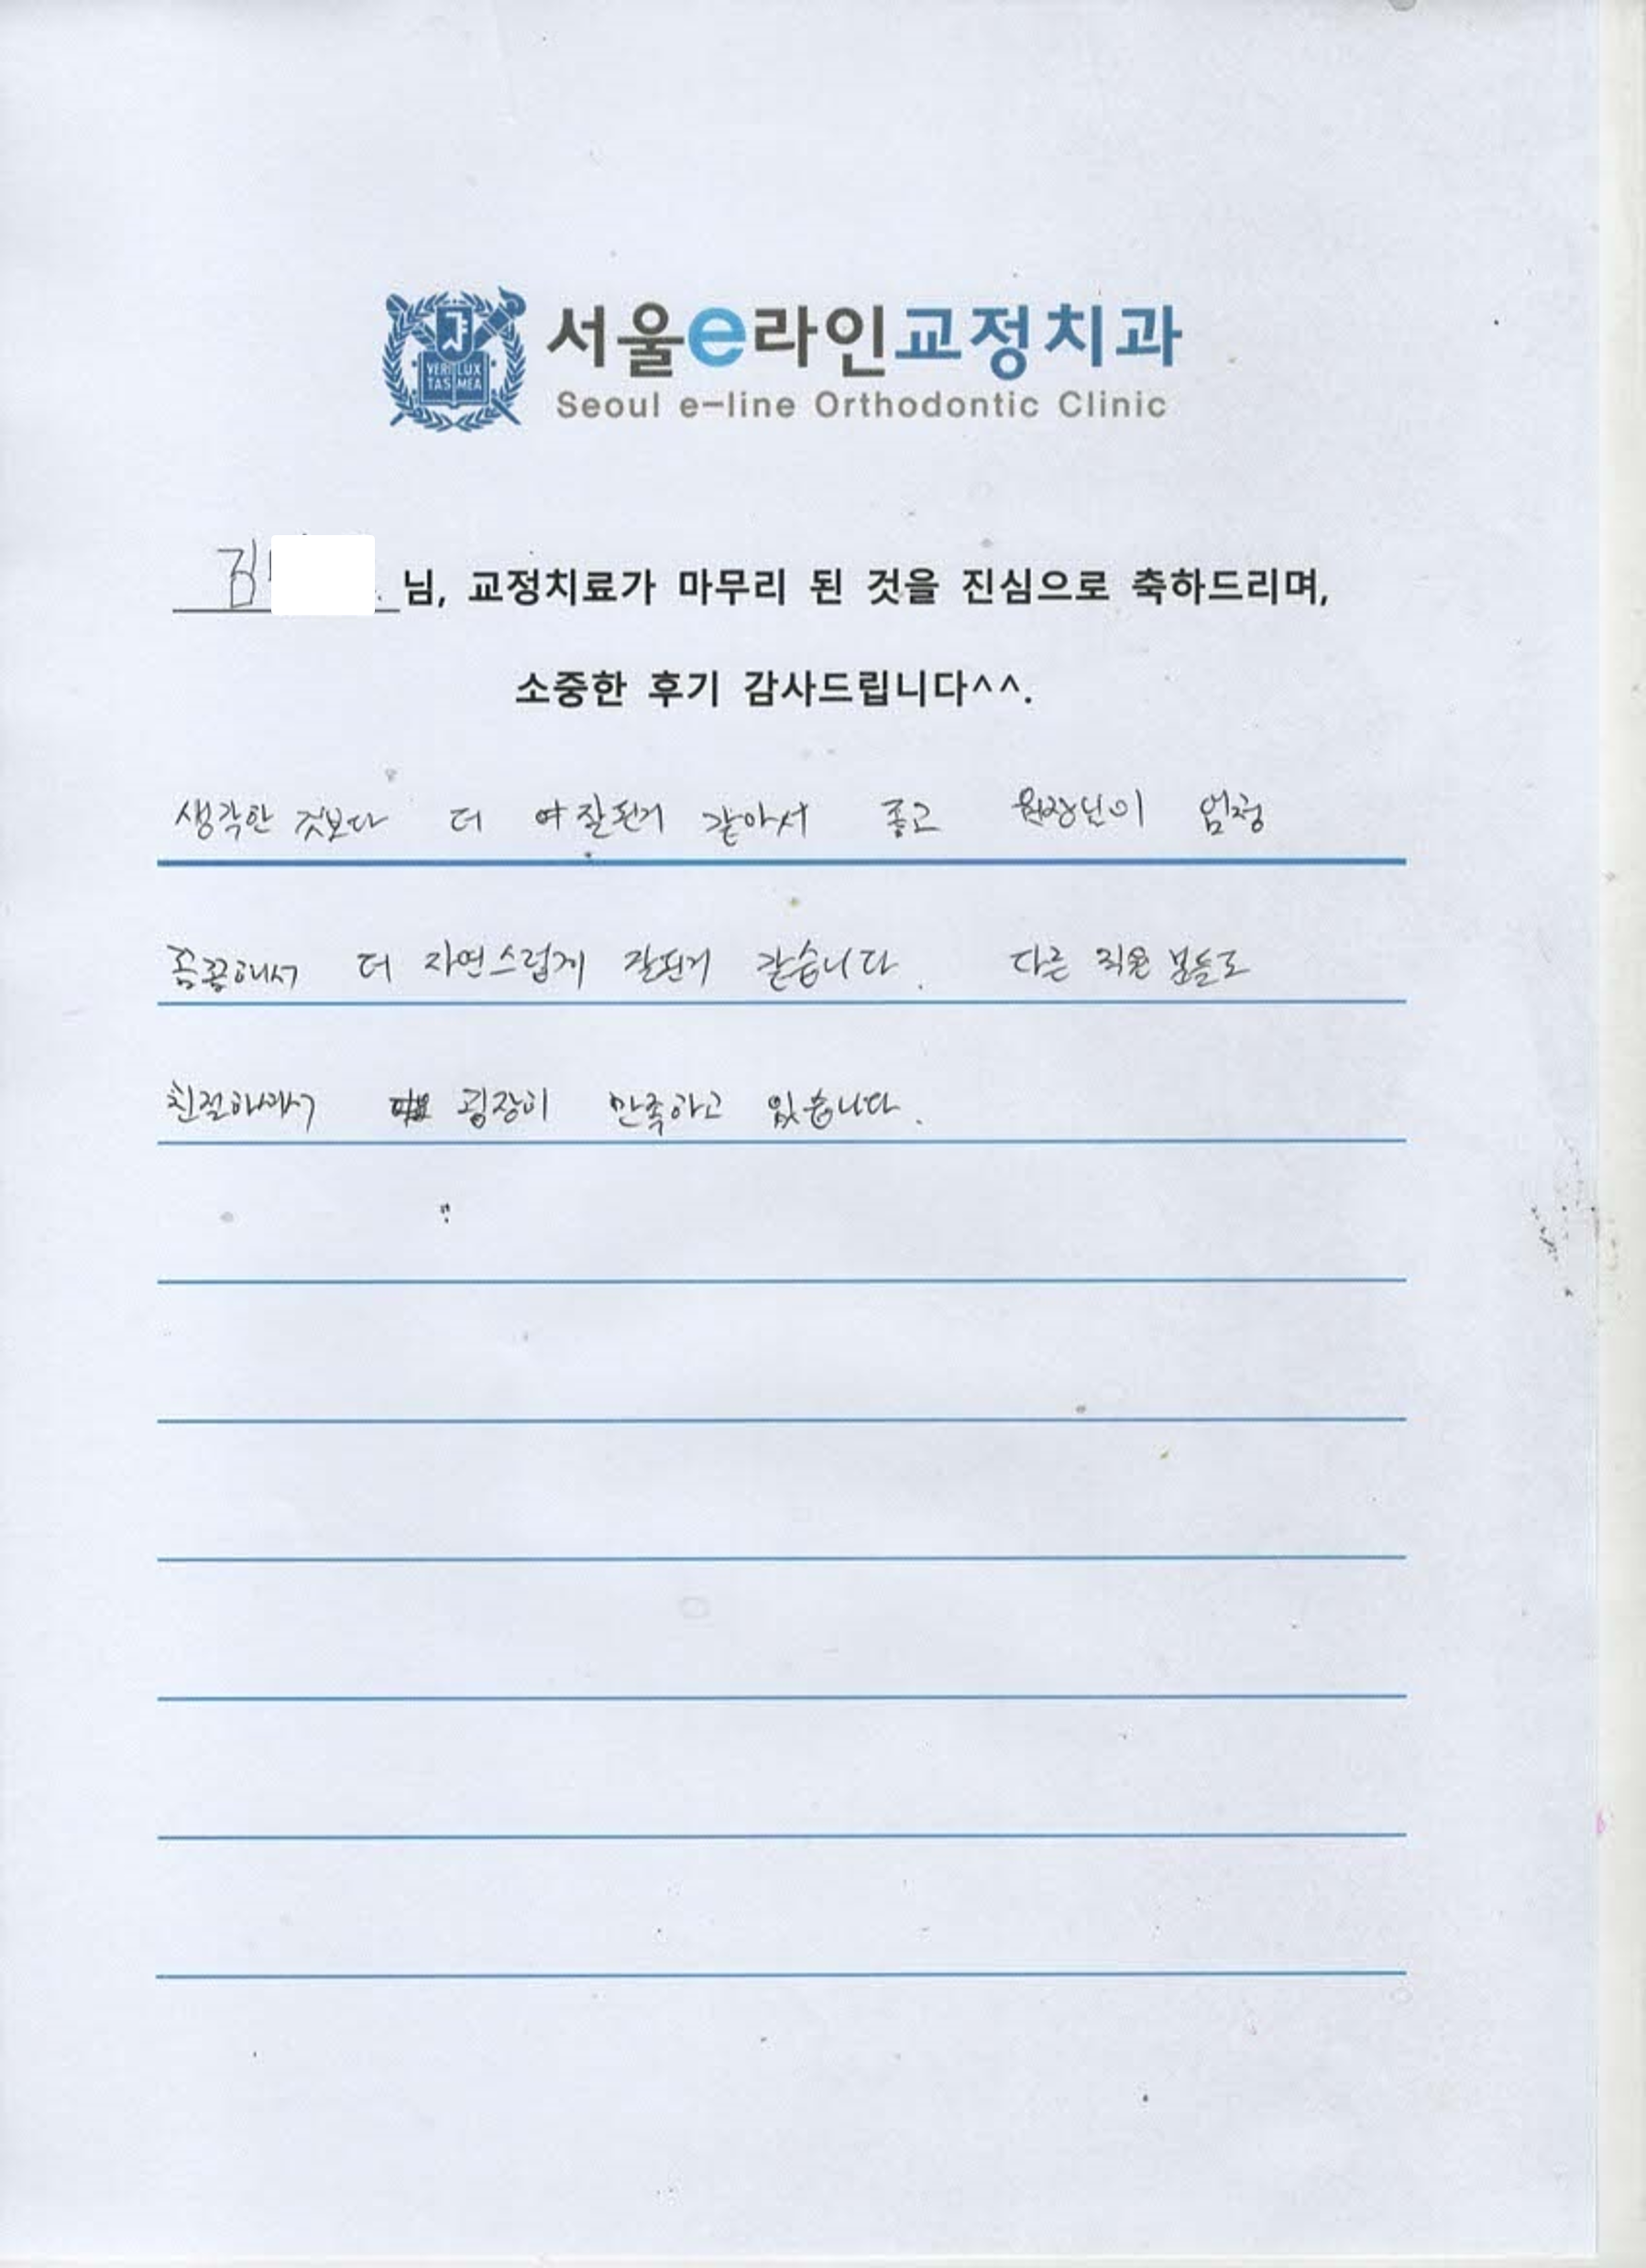 VERI LUX
TAS MEA
서울e라인교정치과
Seoul e-line Orthodontic Clinic
김 님, 교정치료가 마무리 된 것을 진심으로 축하드리며,
소중한 후기 감사드립니다^^.
생각한 것보다 더 잘된거 같아서 좋고 원장님이 엄청
꼼꼼해서 더 자연스럽게 잘된거 같습니다. 다른 직원 분들도
친절하셔서 굉장히 만족하고 있습니다.